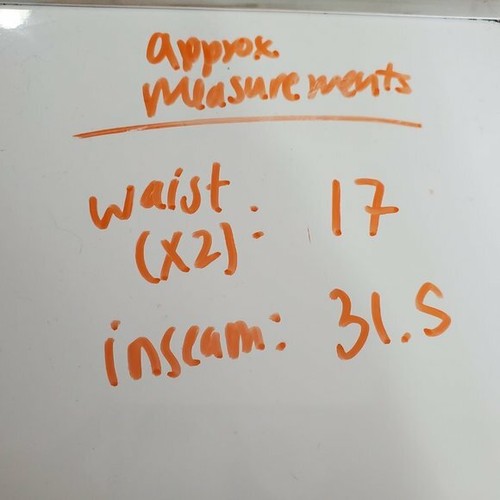 approx
measurements
waist
(x2): 17
inseam: 31.5